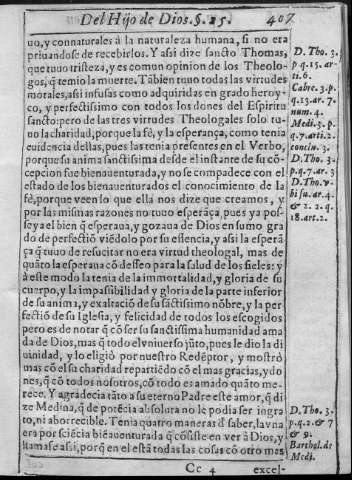 Del Hijo de Dios. §. 25.
407
uo, y connaturales à la naturaleza humana, si no era
priuandose de recebirlos. Y asi dize sancto Thomas,
que tuuo tristeza, y es comun opinion de los Theolo-
gos, q̃ temio la muerte. Tãbien tuuo todas las virtudes
morales, asi infusas como adquiridas en grado heroy-
co, y perfectissimo con todos los dones del Espiritu
sancto: pero de las tres virtudes Theologales solo tu-
uo la charidad, porque la fé, y la esperança, como tenia
euidencia dellas, pues las tenia presentes en el Verbo,
porque su anima sanctissima desde el instante de su cõ-
cepcion fue bienauenturada, y no se compadece con el
estado de los bienauenturados el conocimiento de la
fé, porque veen lo que ella nos dize que creamos, y
por las mismas razones no tuuo esperãça, pues ya pos-
seya el bien q̃ esperaua, y gozaua de Dios en sumo gra
do de perfectiõ viẽdolo por su essencia, y asi la esperã
ça q̃ tuuo de resucitar no era virtud theologal, mas de
quãto la esperana cõ desseo para la salud de los fieles: y
à este modo la tenia de la immortalidad, y gloria de su
cuerpo, y la impasibilidad y gloria de la parte inferior
de su anima, y exaltaciõ de su sãctissimo nõbre, y la per
fectiõ de su Iglesia, y felicidad de todos los escogidos
pero es de notar q̃ cõ ser su sanctissima humanidad ama
da de Dios, mas q̃ todo el vniuerso jũto, pues le dio la di
uinidad, y lo eligiò por nuestro Redẽptor, y mostrò
mas cõ el su charidad repartiẽdo cõ el mas gracias, y do
nes, q̃ cõ todos nosotros, cõ todo es amado quãto me-
rece. Y agradecia tãto a su eterno Padre este amor, q̃ di
ze Medina, q̃ de potẽcia absoluta no le podia ser ingra
to, ni aborrecible. Tenia quatro maneras d̃ saber, la vna
era por sciẽcia biẽauenturada q̃ cõsiste en ver à Dios, y
llamase asi, porq̃ en el està todas las cosas cõ otro mas
Cc 4
excel-
D. Tho. 3.
p. q. 15. ar-
ti. 6.
Cabre. 3. p.
q. 15. ar. 7.
num. 4.
Medi. 3. p.
q. 7. arti. 2.
conclu. 3.
D. Tho. 3.
p. q. 7. ar. 3
D. Tho. v-
bi su. ar. 4.
& 2. 2. q.
18. art. 2.
D. Tho. 3.
p. q. 2. & 7
& 9.
Barthol. de
Medi.